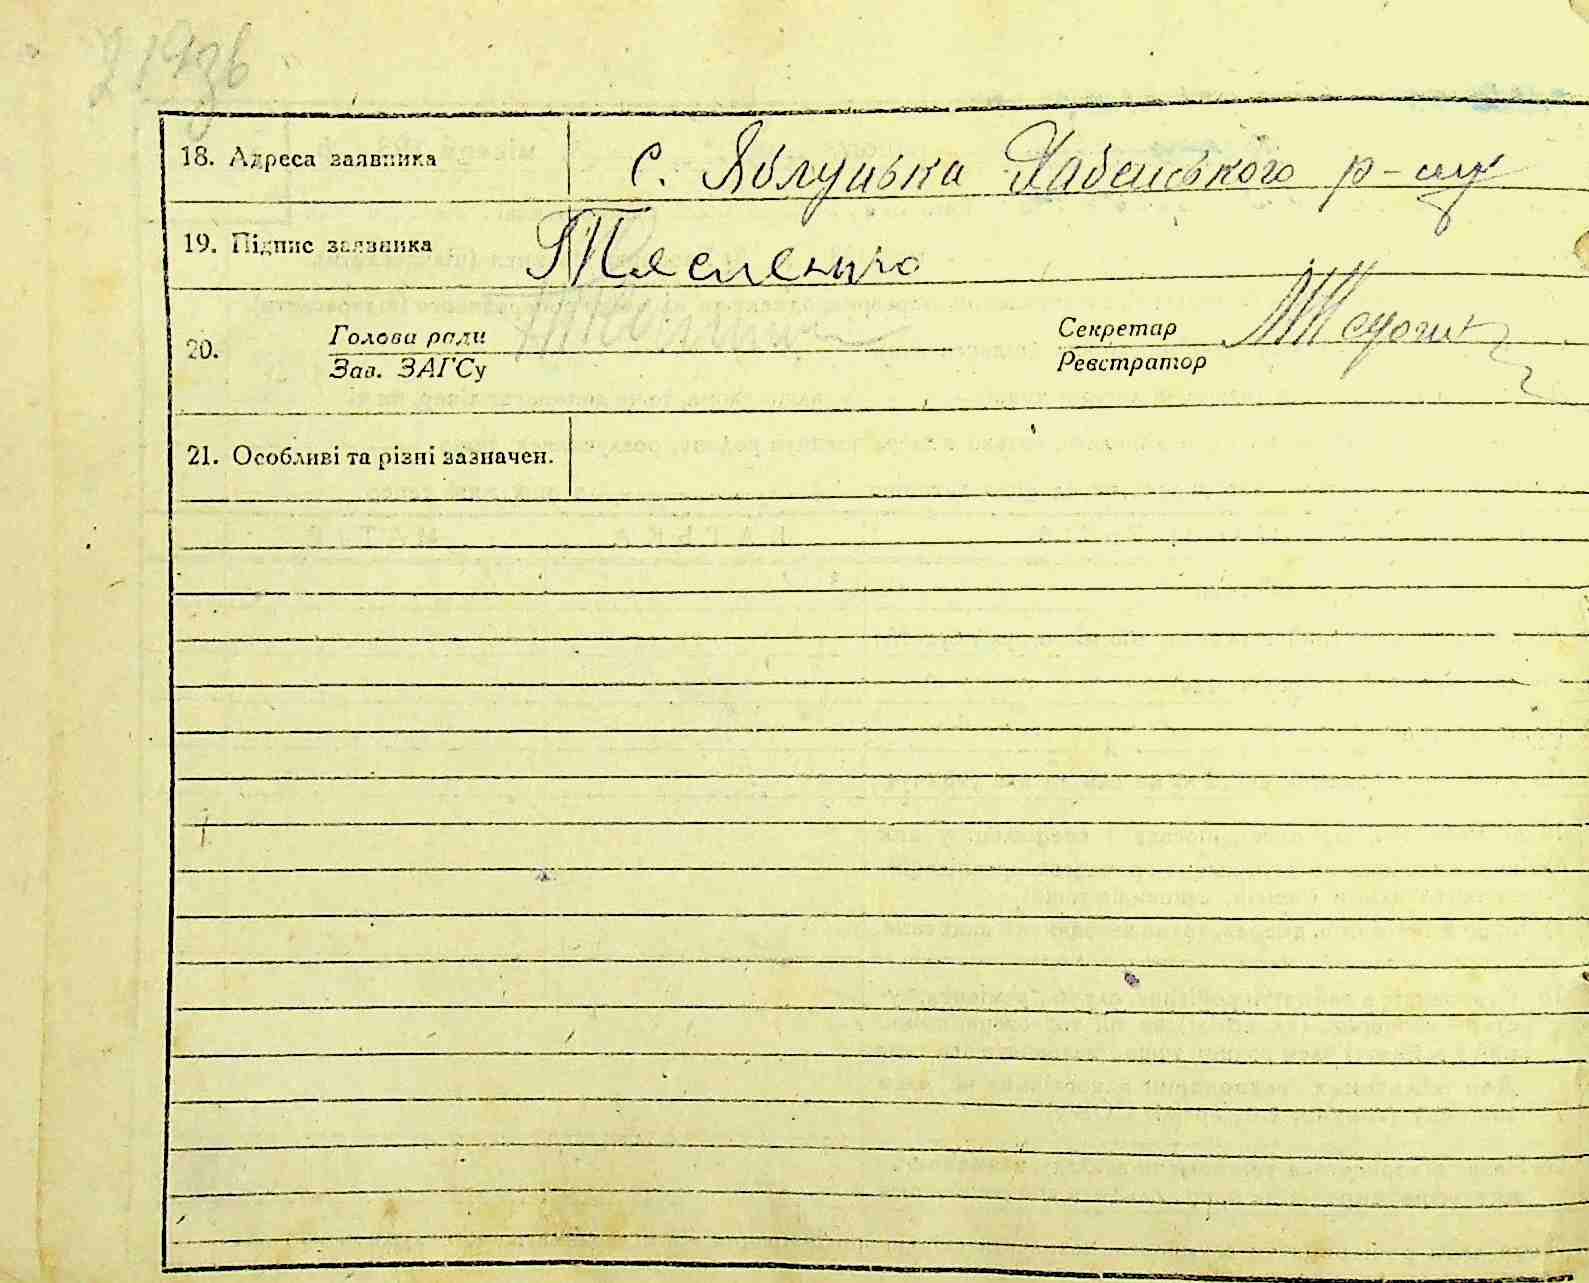 219зв
18. Адреса заявника с. Яблуцька Хабенського р-ну
19. Підпис заявника Тлесленко
20. Голова ради Секретар
Зав. ЗАГСу Реєстратор
21. Особливі та різні зазначен.